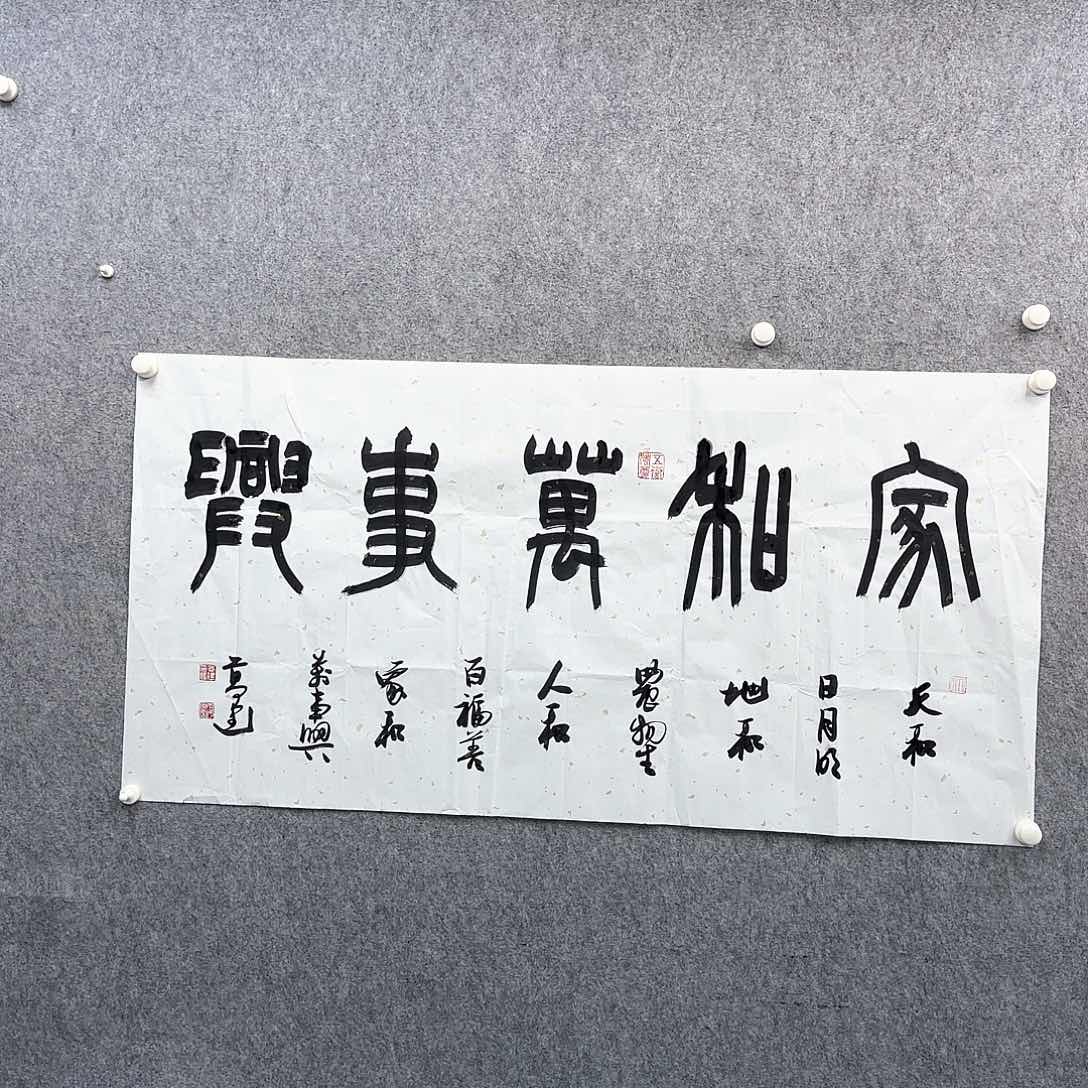 家和萬事興
天和
日月明
地和
農物生
人和
百福善
家和
萬事興